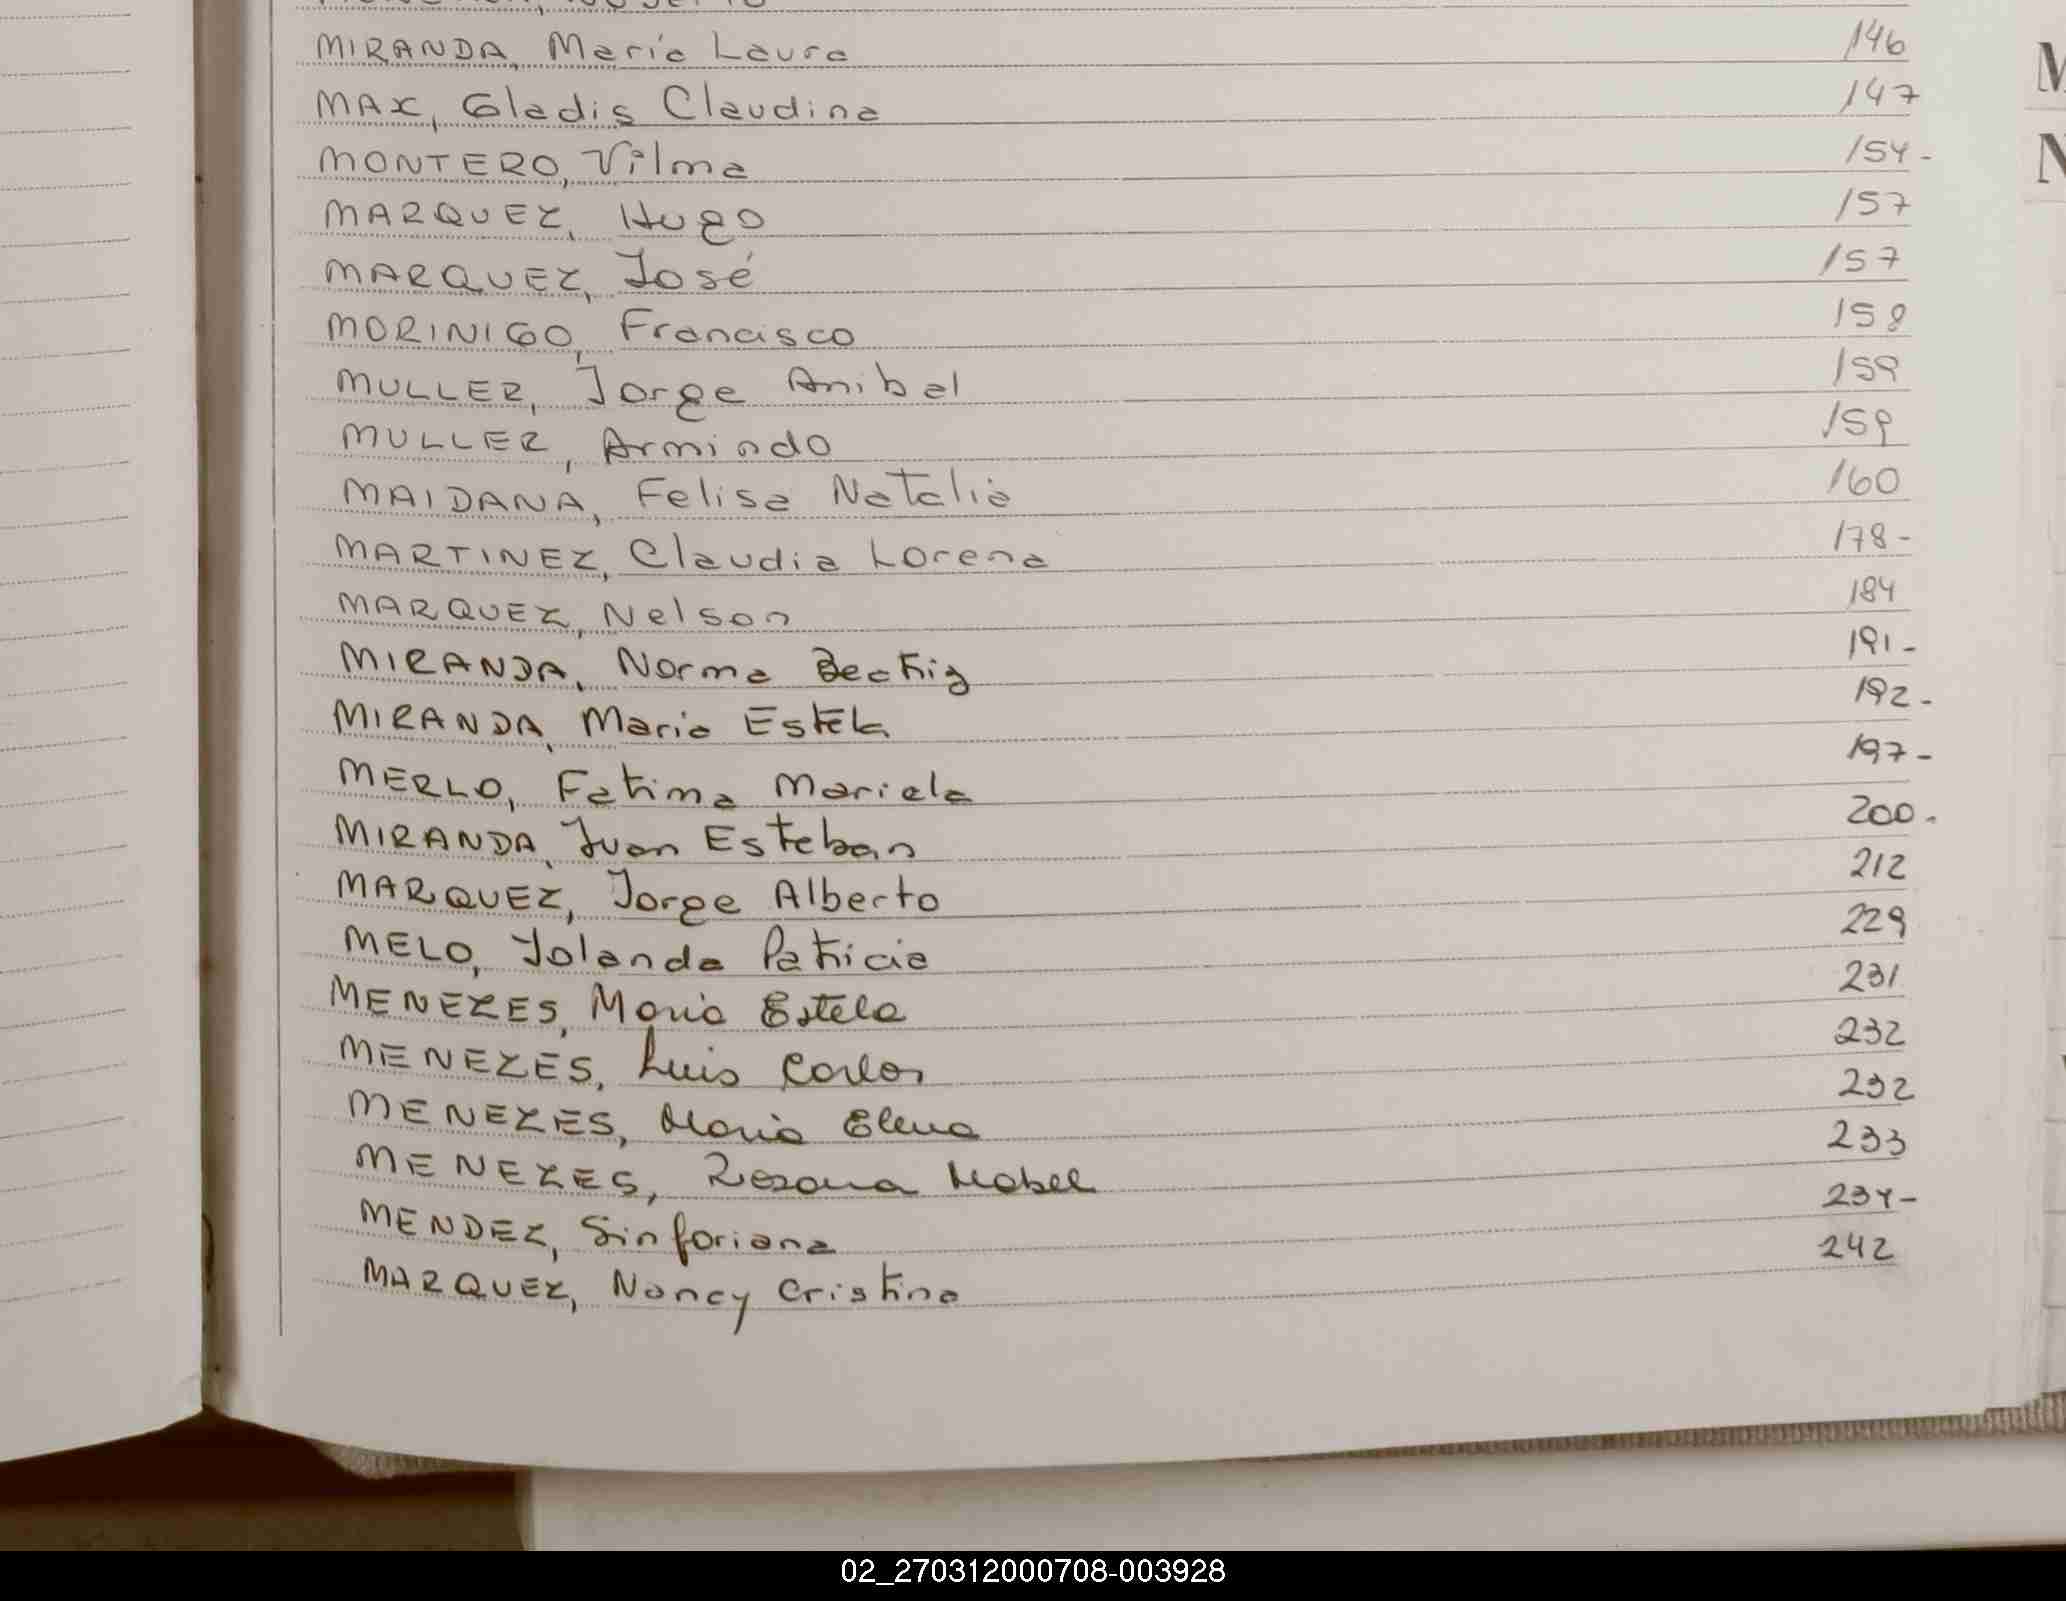 MIRANDA, Maria Laura 146
MAX, Gladis Claudina 147
MONTERO, Vilma 154-
MARQUEZ, Hugo 157
MARQUEZ, José 157
MORINIGO, Francisco 158
MULLER, Jorge Anibal 159
MULLER, Armindo 159
MAIDANA, Felisa Natalia 160
MARTINEZ, Claudia Lorena 178-
MARQUEZ, Nelson 184
MIRANDA, Norma Beatriz 191-
MIRANDA, Maria Estela 192-
MERLO, Fatima Mariela 197-
MIRANDA, Juan Esteban 200-
MARQUEZ, Jorge Alberto 212
MELO, Yolanda Patricia 229
MENEZES, Maria Estela 231
MENEZES, Luis Carlos 232
MENEZES, Maria Elena 232
MENEZES, Rosana Mabel 233
MENDEZ, Sinforiana 234-
MARQUEZ, Nancy Cristina 242
M
N
02_270312000708-003928